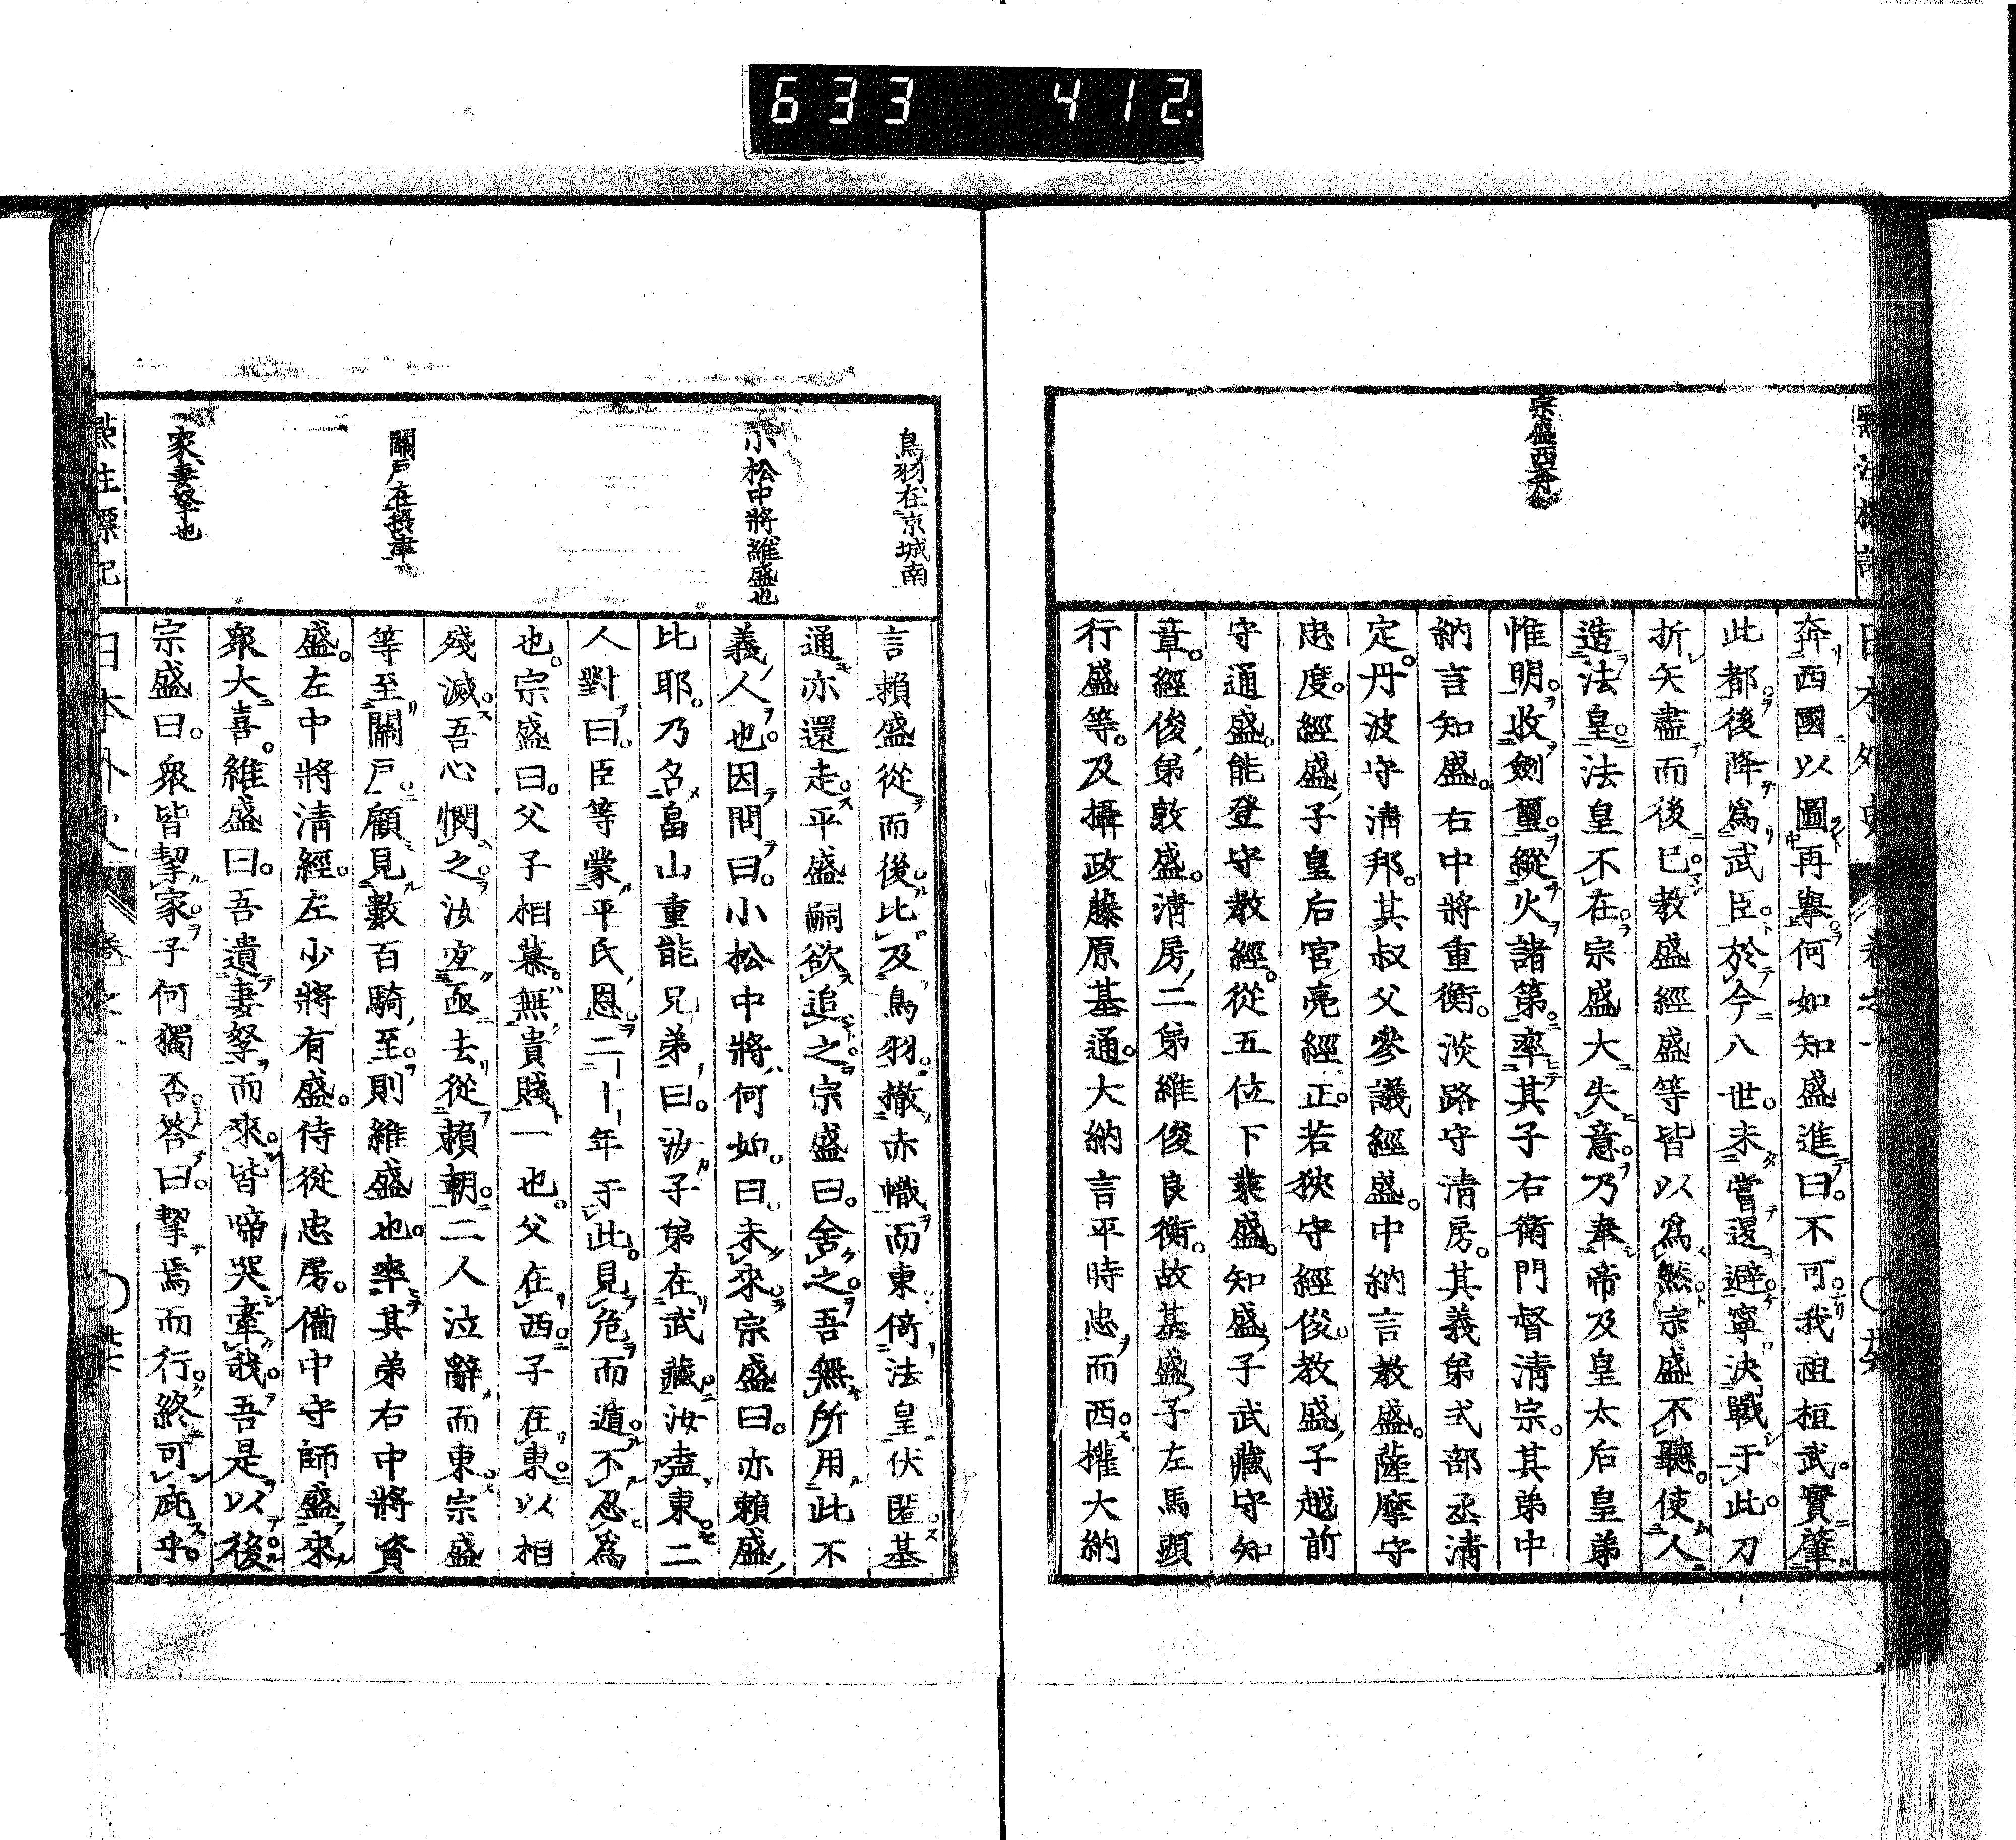 633 412.
宗盛西奔
奔西國以圖再擧何如知盛進曰不可我祖桓武實肇
此都後降爲武臣於今八世未嘗還避寧決戰于此刀
折矢盡而後已教盛經盛等皆以爲然宗盛不聽使人
造法皇法皇不在宗盛大失意乃奉帝及皇太后皇弟
惟明收劍璽縱火諸第率其子右衛門督淸宗其弟中
納言知盛右中將重衡淡路守淸房其義弟式部丞淸
定丹波守淸邦其叔父參議經盛中納言教盛薩摩守
忠度經盛子皇后宮亮經正若狹守經俊教盛子越前
守通盛能登守教經從五位下業盛知盛子武藏守知
章經俊弟敦盛淸房二弟維俊良衡故基盛子左馬頭
行盛等及攝政藤原基通大納言平時忠而西權大納
鳥羽在京城南
小松中將維盛也
關戸在攝津
家妻孥也
言賴盛從而後比及鳥羽撤赤幟而東倚法皇伏匿基
通亦還走平盛嗣欲追之宗盛曰舍之吾無所用此不
義人也因問曰小松中將何如曰未來宗盛曰亦賴盛
比耶乃召畠山重能兄弟曰汝子弟在武藏汝盍東二
人對曰臣等蒙平氏恩二十年于此見危而遁不忍爲
也宗盛曰父子相慕無貴賤一也父在西子在東以相
殘滅吾心憫之汝宜亟去從賴朝二人泣辭而東宗盛
等至關戸顧見數百騎至則維盛也率其弟右中將資
盛左中將淸經左少將有盛侍從忠房備中守師盛來
衆大喜維盛曰吾遺妻孥而來皆啼哭牽我吾是以後
宗盛曰衆皆挈家子何獨否答曰挈焉而行終可庇乎
點註標記
日本外史
卷之一